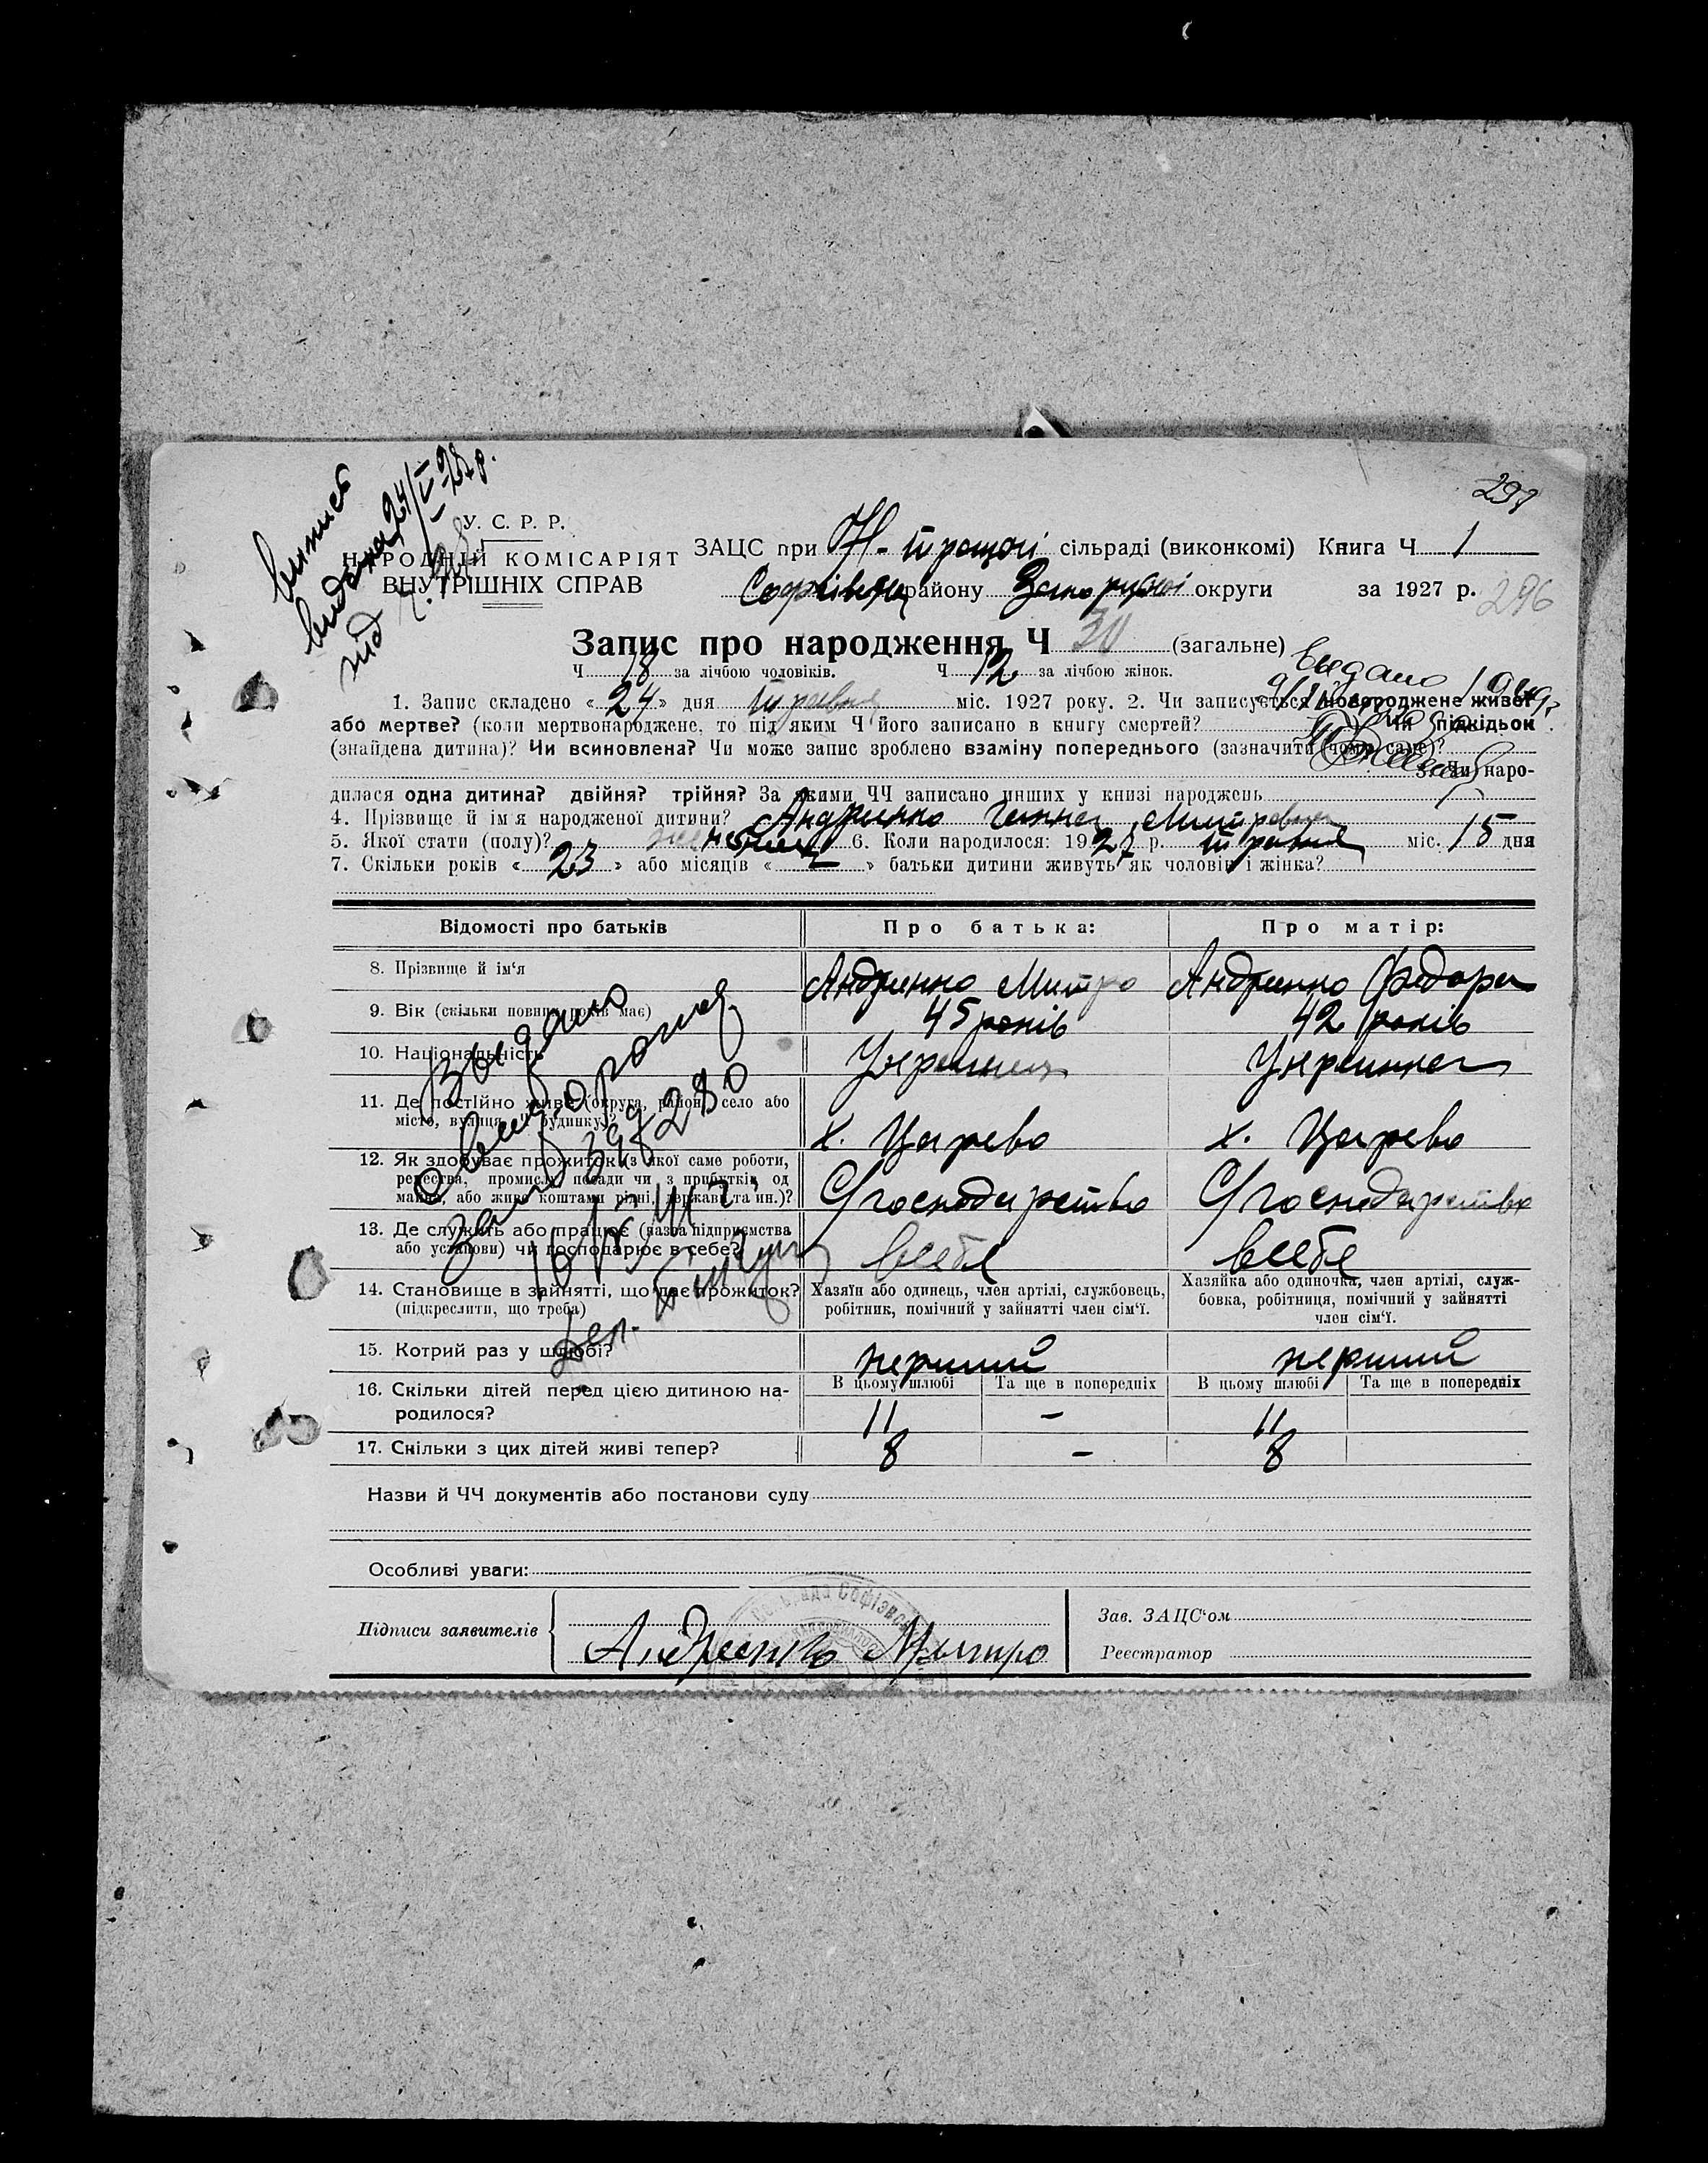 298
випись
видана 24/V-28 р.
під
У. С. Р. Р.
НАРОДНІЙ КОМІСАРІЯТ
ВНУТРІШНІХ СПРАВ
ЗАЦС при Н- сільраді (виконкомі) Книга Ч 1
Софіївськ району Запорізької округи за 1927 р.
296
Запис про народження Ч 30 (загальне)
Ч 18 за лічбою чоловіків. Ч 12 за лічбою жінок.
выдано
1. Запис складено « 24 » дня травня міс. 1927 року. 2. Чи записується новороджене живе?
або мертве? (коли мертвонароджене, то під яким Ч його записано в книгу смертей? чи підкідьок
(знайдена дитина)? Чи всиновлена? Чи може запис зроблено взаміну попереднього (зазначити чому саме)?
3. Чи наро-
дилася одна дитина? двійня? трійня? За якими ЧЧ записано инших у книзі народжень
4. Прізвище й ім'я народженої дитини? Андриенко Ганна Митровна
5. Якої стати (полу)? 6. Коли народилося: 1927 р. травня міс. 15 дня
7. Скільки років « 23 » або місяців « — » батьки дитини живуть як чоловік і жінка?
Відомості про батьків Про батька: Про матір:
8. Прізвище й ім'я Андриенко Митро Андриенко Федора
9. Вік (скільки повних років має) 45 років 42 років
10. Національність Украинец Украинка
11. Де постійно живе (округа, район, село або
місто, вулиця, Ч будинку)? х. Царево х. Царево
12. Як здобуває прожиток (з якої саме роботи,
ремества, промислу, посади чи з прибутків од
майна, або живе коштами рідні, держави та ин.)? С/господарство С/господарство
13. Де служить або працює (назва підприємства
або установи) чи господарює в себе? всебе всебе
14. Становище в зайнятті, що дає прожиток?
(підкреслити, що треба)
Хазяїн або одинець, член артілі, службовець,
робітник, помічний у зайнятті член сім'ї.
Хазяйка або одиночка, член артілі, служ-
бовка, робітниця, помічний у зайнятті
член сім'ї.
15. Котрий раз у шлюбі? перший перший
В цьому шлюбі Та ще в попередніх В цьому шлюбі Та ще в попередніх
16. Скільки дітей перед цією дитиною на-
родилося? 11 — 11
17. Скільки з цих дітей живі тепер? 8 — 8
Выдано
Назви й ЧЧ документів або постанови суду
Особливі уваги:
Підписи заявителів Андреенко Митро
Зав. ЗАЦС'ом
Реєстратор